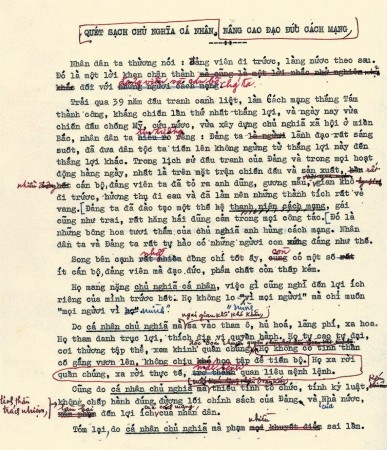 QUÉT SẠCH CHỦ NGHĨA CÁ NHÂN, NÂNG CAO ĐẠO ĐỨC CÁCH MẠNG,
Nhân dân ta thường nói : Đảng viên đi trước, làng nước theo sau.
Đó là một lời khen chân thành
đối với chúng ta.
Trải qua 39 năm đấu tranh oanh liệt, làm Cách mạng tháng Tám
thành công, kháng chiến lần thứ nhất thắng lợi, và ngày nay vừa
chiến đấu chống Mỹ, cứu nước, vừa xây dựng chủ nghĩa xã hội ở miền
Bắc, nhân dân ta tin tưởng rằng : Đảng ta là người lãnh đạo rất sáng
suốt, đã đưa dân tộc ta tiến lên không ngừng từ thắng lợi này đến
thắng lợi khác. Trong lịch sử đấu tranh của Đảng và trong mọi hoạt
động hàng ngày, nhất là trên mặt trận chiến đấu và sản xuất,
nhiều cán bộ, đảng viên ta đã tỏ ra anh dũng, gương mẫu, gian khổ
đi trước, hưởng thụ đi sau và đã làm nên những thành tích rất vẻ
vang. Đảng ta đã đào tạo một thế hệ thanh niên cách mạng, gái
cũng như trai, rất hăng hái dũng cảm trong mọi công tác. Đó là
những bông hoa tươi thắm của chủ nghĩa anh hùng cách mạng. Nhân
dân ta và Đảng ta rất tự hào có những người con xứng đáng như thế.
Song bên cạnh những đồng chí tốt ấy, còn có một số
ít cán bộ, đảng viên mà đạo đức, phẩm chất còn thấp kém.
Họ mang nặng chủ nghĩa cá nhân, việc gì cũng nghĩ đến lợi ích
riêng của mình trước hết. Họ không lo "vì mọi người" mà chỉ muốn
"mọi người vì mình".
ngại gian khổ, khó khăn,
Do cá nhân chủ nghĩa mà sa vào tham ô, hủ hoá, lãng phí, xa hoa.
Họ tham danh trục lợi, thích địa vị quyền hành. Họ tự cao tự đại,
coi thường tập thể, xem khinh quần chúng
cố gắng vươn lên, không chịu học tập để tiến bộ. Họ xa rời
quần chúng, xa rời thực tế, quan liêu mệnh lệnh.
Cũng do cá nhân chủ nghĩa mà thiếu tính tổ chức, tính kỷ luật,
tinh thần
trách nhiệm,
không chấp hành đúng đường lối chính sách của Đảng và Nhà nước
đến lợi ích của nhân dân.
Tóm lại, do cá nhân chủ nghĩa mà phạm nhiều sai lầm.